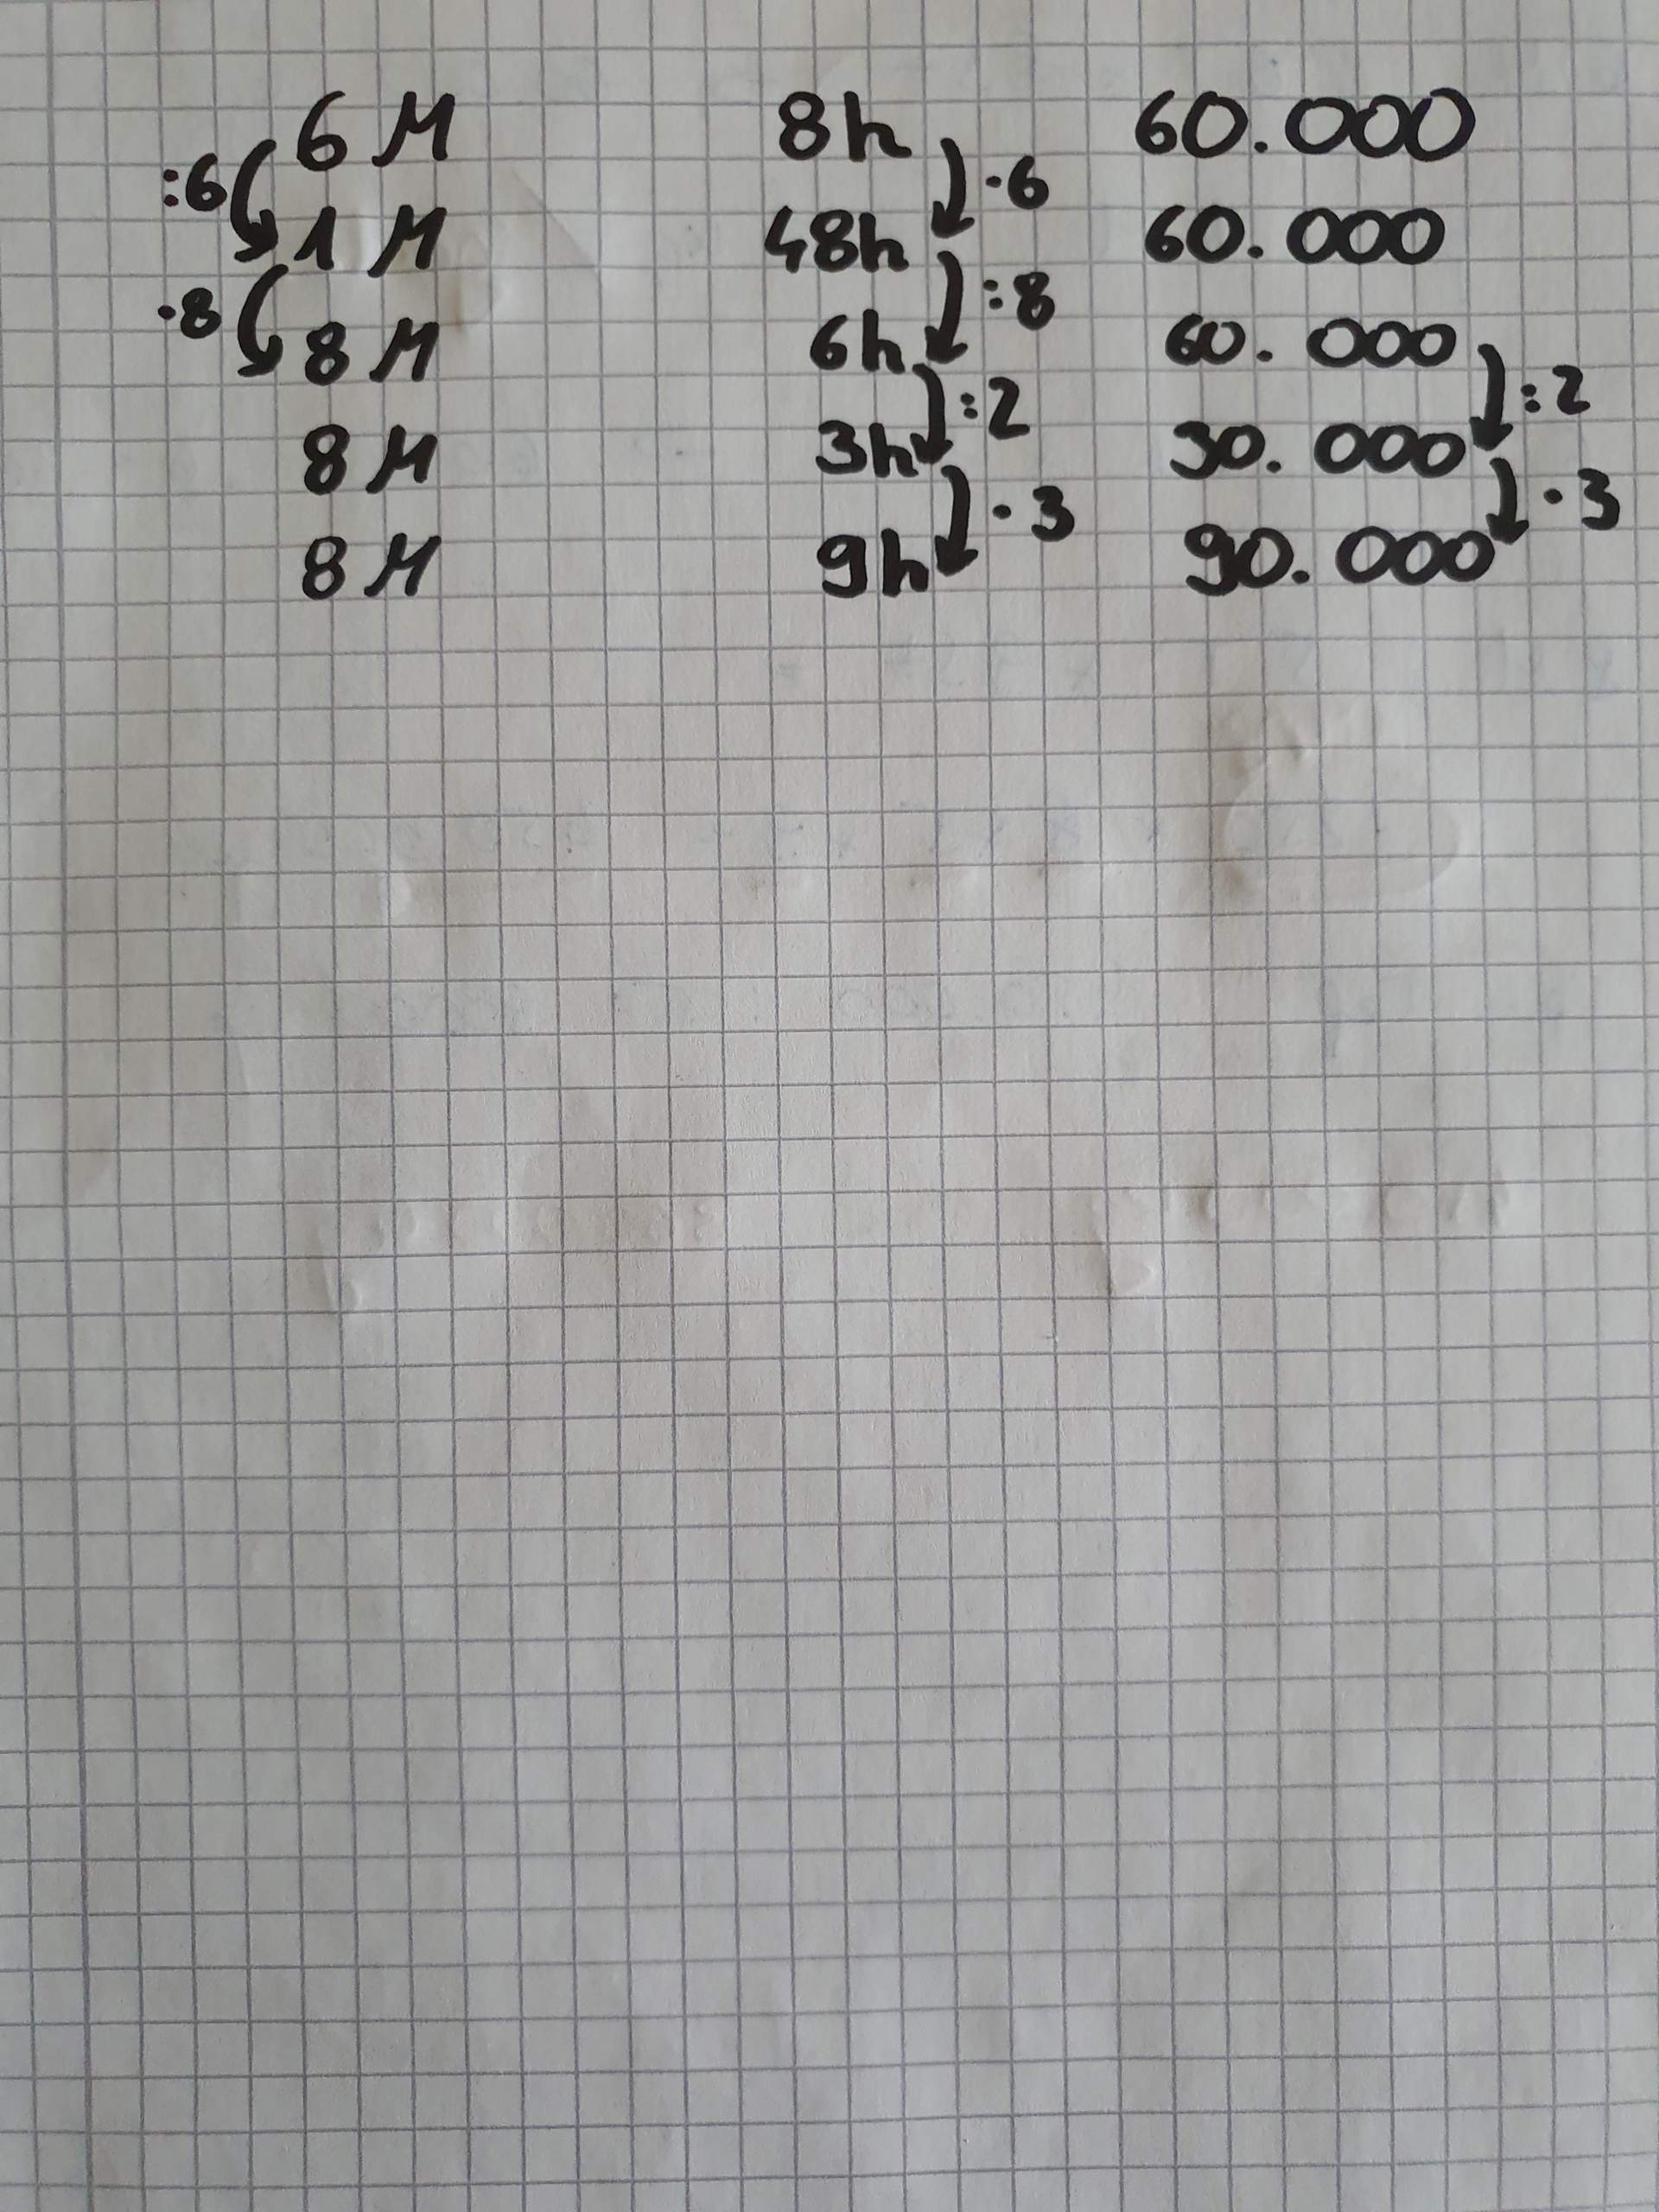 6 M 8h 60.000
:6 ·6
1 M 48h 60.000
·8 :8
8 M 6h 60.000
:2 :2
8 M 3h 30.000
·3 ·3
8 M 9h 90.000